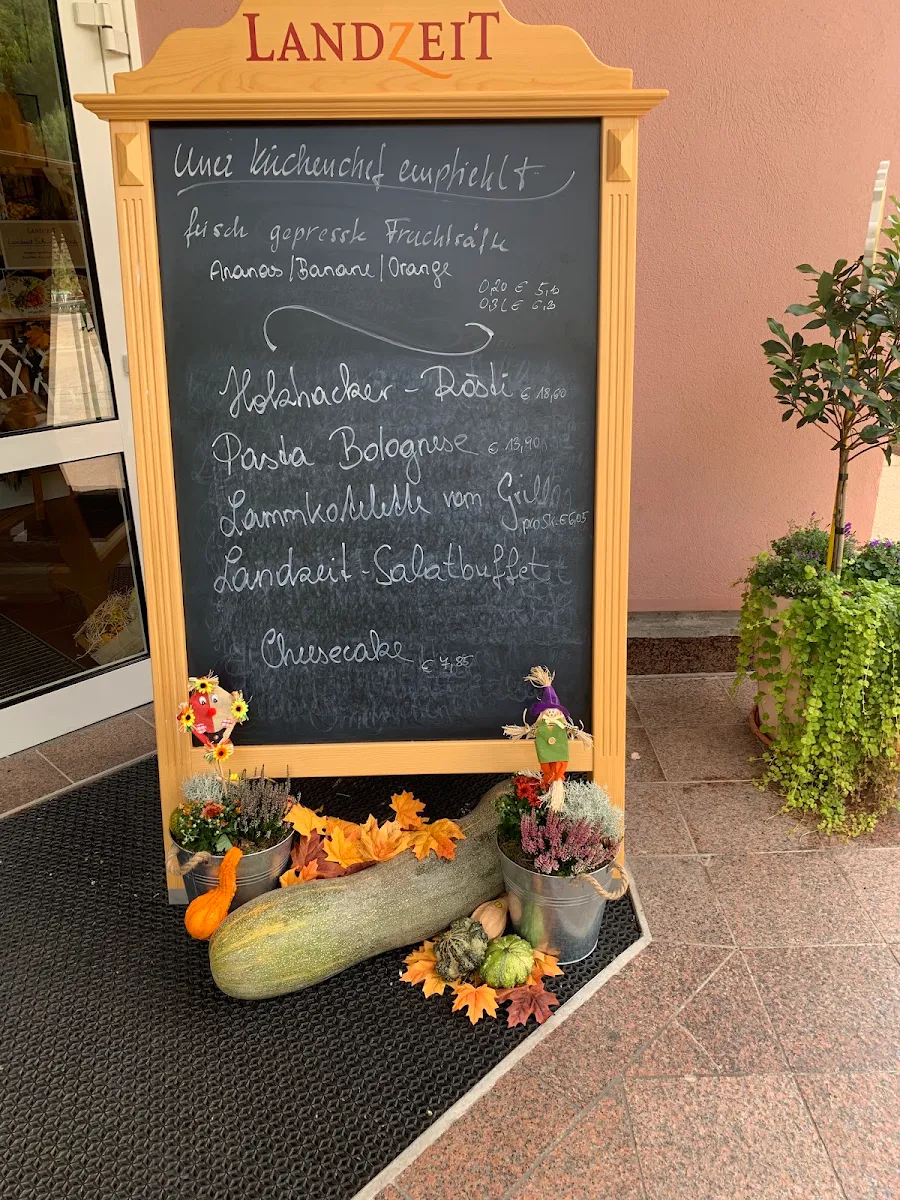 LANDZEIT
Unser Küchenchef empfiehlt
frisch gepresste Fruchtsäfte
Ananas/Banane/Orange
0,20 € 5,10
0,3l €
Holzhacker-Rösti € 18,60
Pasta Bolognese € 13,90
Lammkotelette vom Grill
pro Stk. € 6,05
Landzeit-Salatbuffet
Cheesecake € 7,85